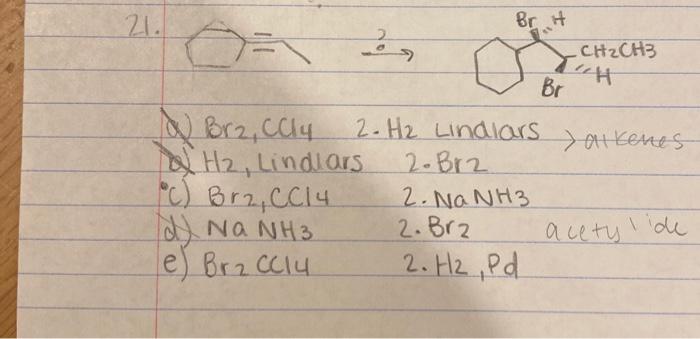 21.
?
Br H
CH2CH3
H
Br
a) Br2, CCl4 2. H2 Lindlars > alkenes
b) H2, Lindlars 2. Br2
c) Br2, CCl4 2. Na NH3
d) Na NH3 2. Br2 acetylide
e) Br2 CCl4 2. H2, Pd